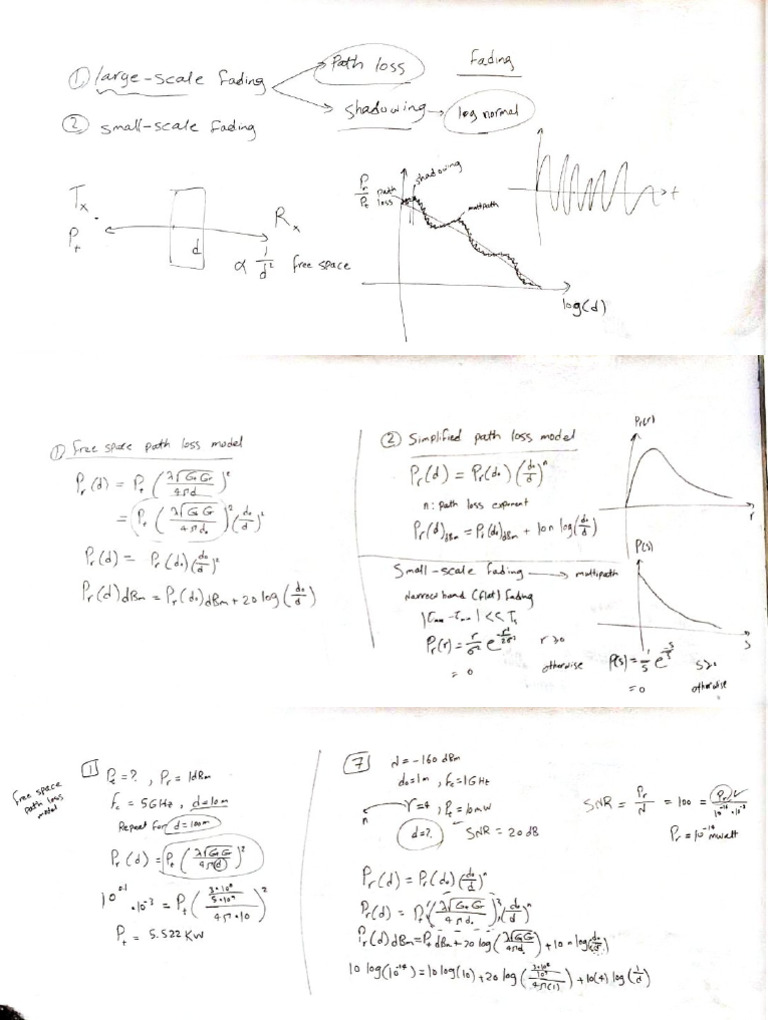 ① large-scale fading
Path loss
fading
shadowing → log normal
② small-scale fading
Tx
Pt
d
Rx
∝ 1/d² free space
Pr/Pt
path loss
shadowing
multipath
t
log(d)
① free space path loss model
Pr(d) = Pt (λ√G G / 4πd)²
= Pt (λ√G G / 4πd₀)² (d₀/d)²
Pr(d) = Pr(d₀) (d₀/d)²
Pr(d)dBm = Pr(d₀)dBm + 20 log(d₀/d)
② Simplified path loss model
Pr(d) = Pr(d₀) (d₀/d)ⁿ
n: path loss exponent
Pr(d)dBm = Pr(d₀)dBm + 10n log(d₀/d)
Pr(r)
r
Small-scale fading → multipath
Narrowband (flat) fading
Pr(r) = r/σ² e^(-r²/2σ²) r≥0
= 0 otherwise
P(s)
s
P(s) = 1/s̄ e^(-s/s̄) s≥0
= 0 otherwise
free space path loss model
1 Pt = ?, Pr = 1dBm
fc = 5GHz, d=10m
Repeat for d=100m
Pr(d) = Pt (λ√G G / 4π(d))²
10^0.1 · 10^-3 = Pt ((3·10⁸/5·10⁹) / 4π·10)²
Pt = 5.522 KW
7 N = -160 dBm
d₀=1m, fc=1GHz
n ← γ=4, Pt=10mW
d=? SNR = 20 dB
SNR = Pr/N = 100 = Pr / 10^-16 · 10^-3
Pr = 10^-14 mwatt
Pr(d) = Pr(d₀) (d₀/d)ⁿ
Pr(d) = Pt (λ√G G / 4πd₀)² (d₀/d)ⁿ
Pr(d)dBm = Pt dBm + 20 log(λ√G G / 4πd₀) + 10 n log(d₀/d)
10 log(10^-14) = 10 log(10) + 20 log((3·10⁸/10⁹) / 4π(1)) + 10(4) log(1/d)